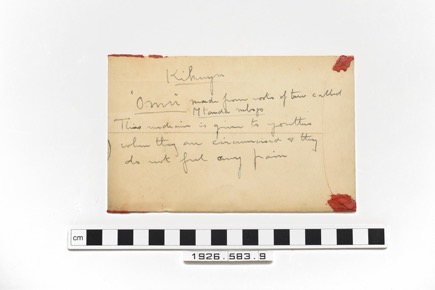 Kikuyu
"Omii" made from roots of tree called
Mtanda mbogo
This medicine is given to youths
) when they are circumcised & they
do not feel any pain
cm
1926.583.9